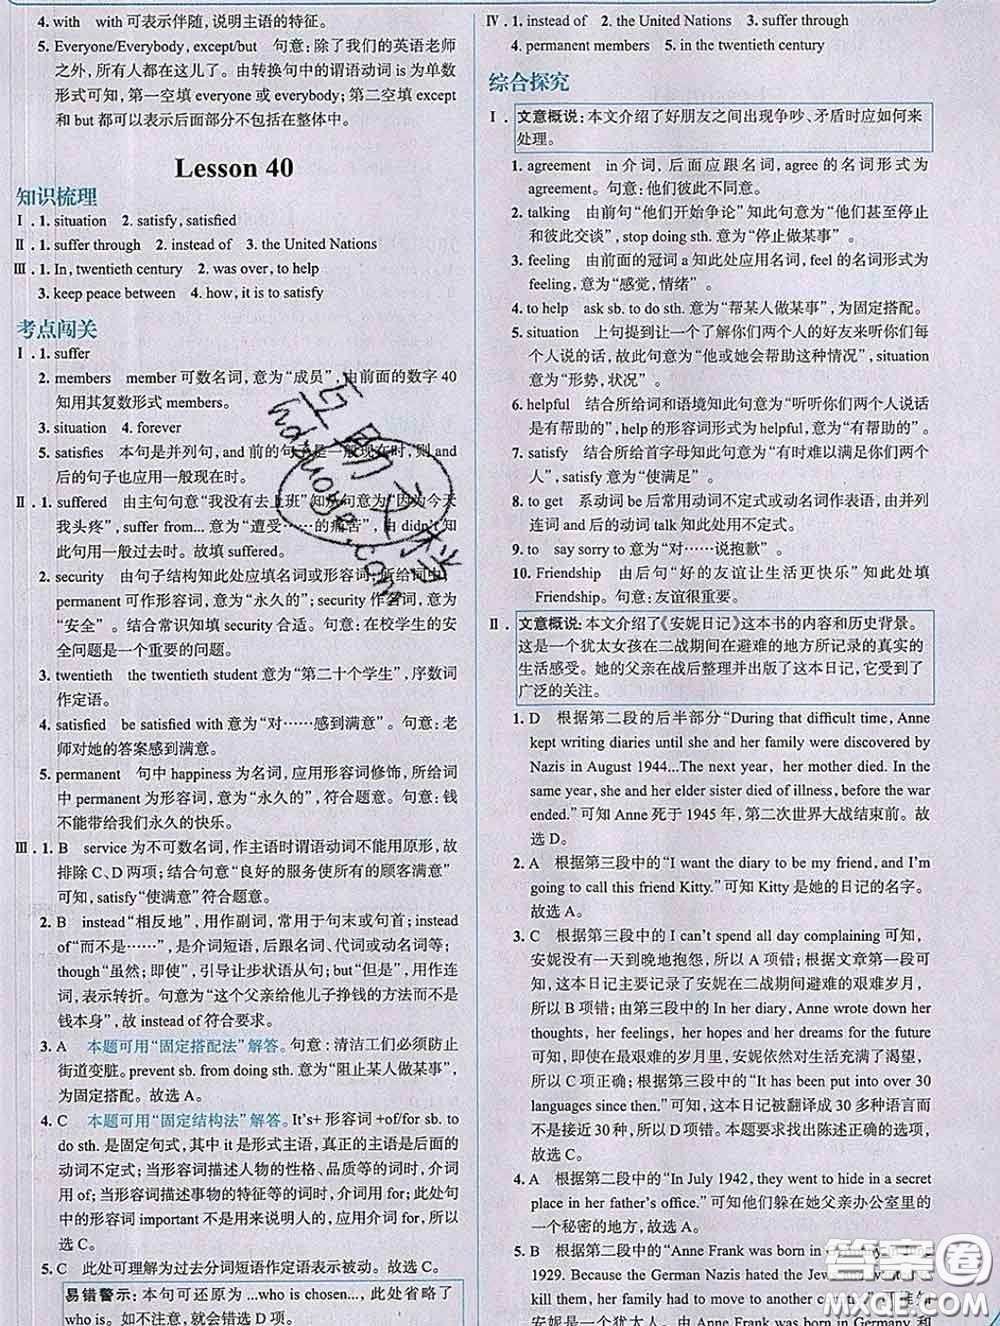 4. with with 可表示伴随，说明主语的特征。
5. Everyone/Everybody, except/but 句意：除了我们的英语老师
之外，所有人都在这儿了。由转换句中的谓语动词 is 为单数
形式可知，第一空填 everyone 或 everybody；第二空填 except
和 but 都可以表示后面部分不包括在整体中。
Lesson 40
知识梳理
Ⅰ. 1. situation 2. satisfy, satisfied
Ⅱ. 1. suffer through 2. instead of 3. the United Nations
Ⅲ. 1. In, twentieth century 2. was over, to help
3. keep peace between 4. how, it is to satisfy
考点闯关
Ⅰ. 1. suffer
2. members member 可数名词，意为“成员”，由前面的数字 40
知用其复数形式 members。
3. situation 4. forever
5. satisfies 本句是并列句，and 前的句子是一般现在时，则 and
后的句子也应用一般现在时。
Ⅱ. 1. suffered 由主句句意“我没有去上班”知从句意为“因为今天
我头疼”，suffer from... 意为“遭受……的痛苦”，由 didn't 知
此句用一般过去时。故填 suffered。
2. security 由句子结构知此处应填名词或形容词；所给词中
permanent 可作形容词，意为“永久的”；security 作名词，意为
“安全”。结合常识知填 security 合适。句意：在校学生的安
全问题是一个重要的问题。
3. twentieth the twentieth student 意为“第二十个学生”，序数词
作定语。
4. satisfied be satisfied with 意为“对……感到满意”。句意：老
师对她的答案感到满意。
5. permanent 句中 happiness 为名词，应用形容词修饰，所给词
中 permanent 为形容词，意为“永久的”，符合题意。句意：钱
不能带给我们永久的快乐。
Ⅲ. 1. B service 为不可数名词，作主语时谓语动词不能用原形，故
排除 C、D 两项；结合句意“良好的服务使所有的顾客满意”
可知，satisfy“使满意”符合题意。
2. B instead“相反地”，用作副词，常用于句末或句首；instead
of“而不是……”，是介词短语，后跟名词、代词或动名词等；
though“虽然；即使”，引导让步状语从句；but“但是”，用作连
词，表示转折。句意为“这个父亲给他儿子挣钱的方法而不是
钱本身”，故 instead of 符合要求。
3. A 本题可用“固定搭配法”解答。句意：清洁工们必须防止
街道变脏。prevent sb. from doing sth. 意为“阻止某人做某事”，
为固定搭配。故选 A。
4. C 本题可用“固定结构法”解答。It's+ 形容词 +of/for sb. to
do sth. 是固定句式，其中 it 是形式主语，真正的主语是后面的
动词不定式；当形容词描述人物的性格、品质等的词时，介词
用 of；当形容词描述事物的特征等的词时，介词用 for；此处句
中的形容词 important 不是用来说明人的，应用介词 for，所以
选 C。
5. C 此处可理解为过去分词短语作定语表示被动。故选 C。
易错警示：本句可还原为 ...who is chosen...，此处省略了
who is。如不注意，就会错选 D 项。
Ⅳ. 1. instead of 2. the United Nations 3. suffer through
4. permanent members 5. in the twentieth century
综合探究
Ⅰ. 文意概说：本文介绍了好朋友之间出现争吵、矛盾时应如何来
处理。
1. agreement in 介词，后面应跟名词，agree 的名词形式为
agreement。句意：他们彼此不同意。
2. talking 由前句“他们开始争论”知此句意为“他们甚至停止
和彼此交谈”，stop doing sth. 意为“停止做某事”。
3. feeling 由前面的冠词 a 知此处应用名词，feel 的名词形式为
feeling，意为“感觉，情绪”。
4. to help ask sb. to do sth. 意为“帮某人做某事”，为固定搭配。
5. situation 上句提到让一个了解你们两个人的好友来听你们每
个人说的话，故此句意为“他或她会帮助这种情况”，situation
意为“形势，状况”。
6. helpful 结合所给词和语境知此句意为“听听你们两个人说话
是有帮助的”，help 的形容词形式为 helpful，意为“有帮助的”。
7. satisfy 结合所给首字母知此句意为“有时难以满足你们两个
人”，satisfy 意为“使满足”。
8. to get 系动词 be 后常用动词不定式或动名词作表语，由并列
连词 and 后的动词 talk 知此处用不定式。
9. to say sorry to 意为“对……说抱歉”。
10. Friendship 由后句“好的友谊让生活更快乐”知此处填
Friendship。句意：友谊很重要。
Ⅱ. 文意概说：本文介绍了《安妮日记》这本书的内容和历史背景。
这是一个犹太女孩在二战期间在避难的地方所记录的真实的
生活感受。她的父亲在战后整理并出版了这本日记，它受到了
广泛的关注。
1. D 根据第二段的后半部分“During that difficult time, Anne
kept writing diaries until she and her family were discovered by
Nazis in August 1944...The next year, her mother died. In the
same year, she and her elder sister died of illness, before the war
ended.”可知 Anne 死于 1945 年，第二次世界大战结束前。故
选 D。
2. A 根据第三段中的“I want the diary to be my friend, and I'm
going to call this friend Kitty.”可知 Kitty 是她的日记的名字。
故选 A。
3. C 根据第三段中的 I can't spend all day complaining 可知，
安妮没有一天到晚地抱怨，所以 A 项错；根据文章第一段可
知，这本日记主要记录了安妮在二战期间避难的艰难岁月，
所以 B 项错；由第三段中的 In her diary, Anne wrote down her
thoughts, her feelings, her hopes and her dreams for the future
可知，即使在最艰难的岁月里，安妮依然对生活充满了渴望，
所以 C 项正确；根据第三段中的“It has been put into over 30
languages since then.”可知，这本日记被翻译成 30 多种语言而
不是不到 30 种，所以 D 项错。本题要求找出陈述正确的选项，
故选 C。
4. A 根据第二段中的“In July 1942, they went to hide in a secret
place in her father's office.”可知他们躲在她父亲办公室里的
一个秘密的地方，故选 A。
5. B 根据第二段中的“Anne Frank was born in
1929. Because the German Nazis hated the Jews and wanted to
kill them, her family had to move to another
安妮是一个犹太人，由于
互助文档
hdzuoye.com
答案圈
MXQE.COM